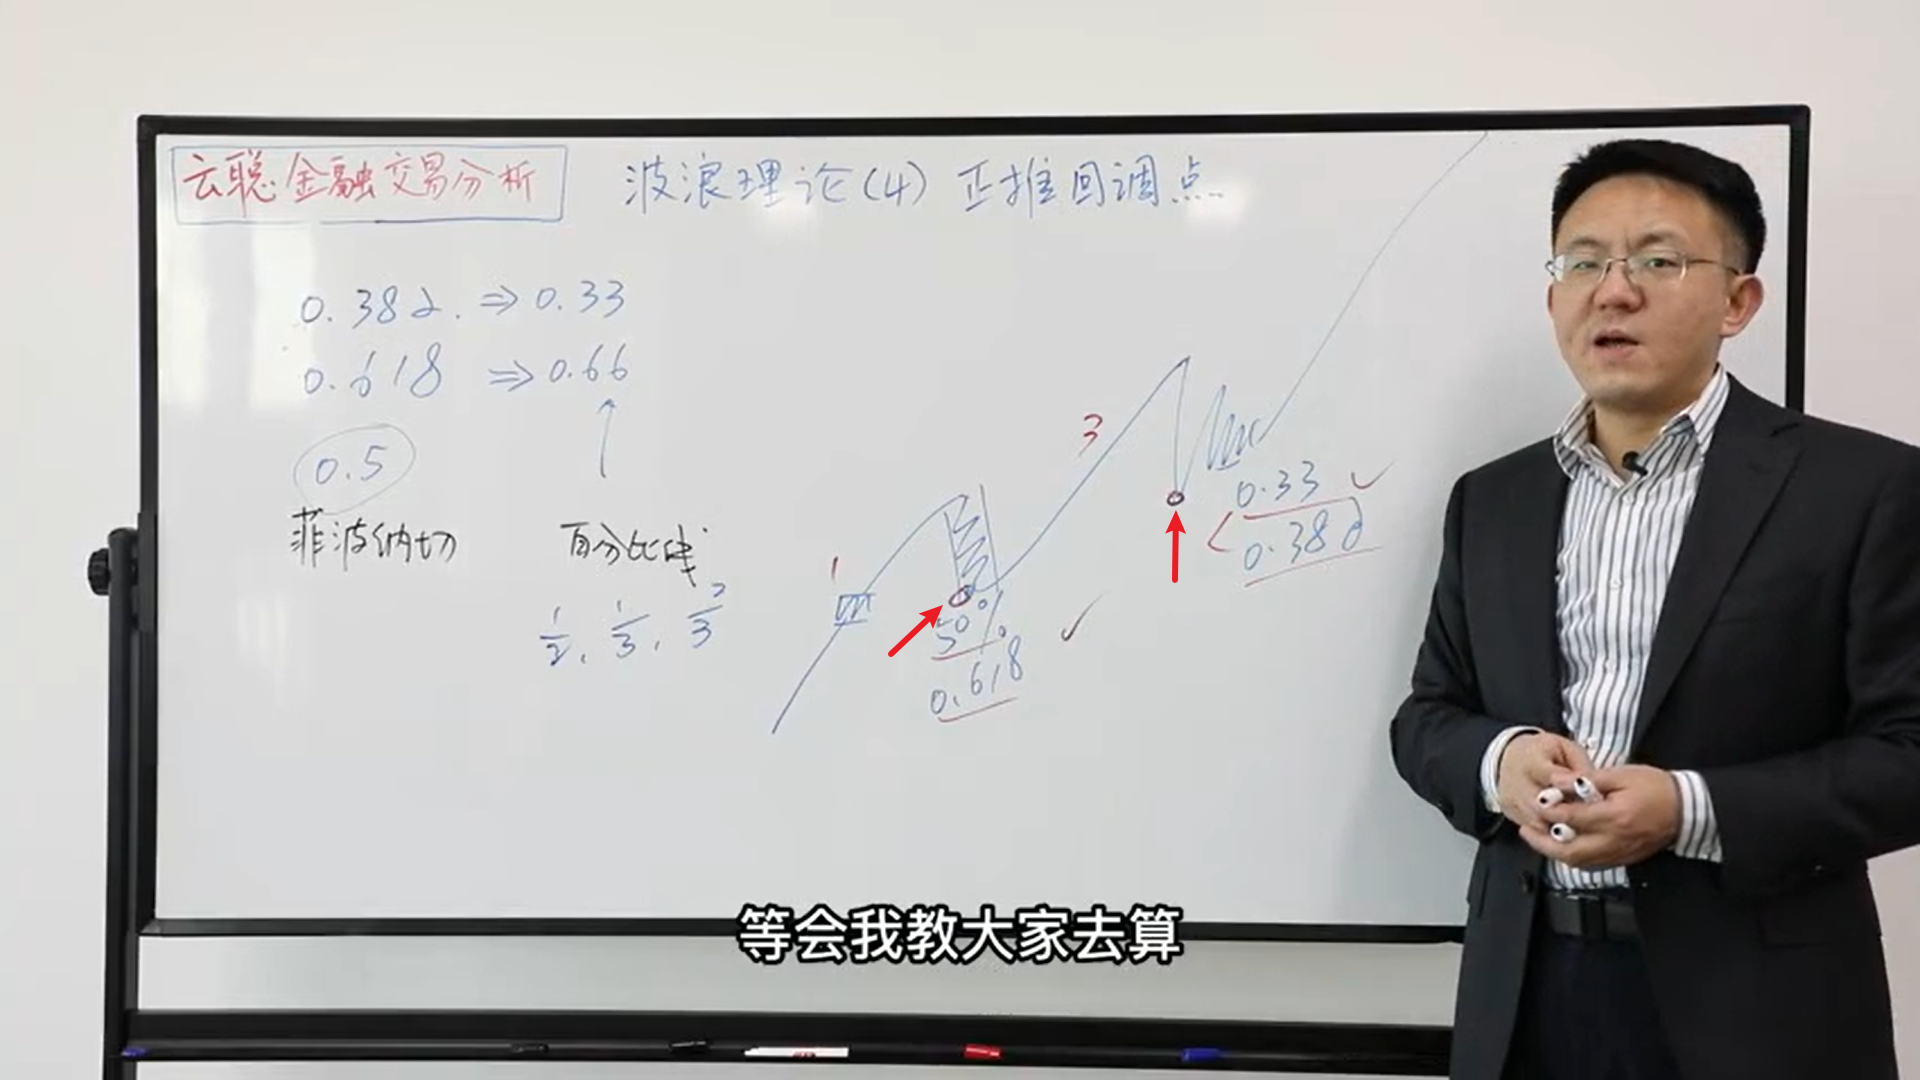 云聪金融交易分析
波浪理论(4) 正推回调点
0.382. ⇒ 0.33
0.618 ⇒ 0.66
0.5
菲波纳切
百分比线
1/2, 1/3, 2/3
1
50%
0.618
3
0.33
0.382
等会我教大家去算